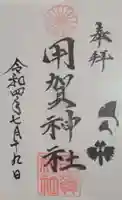 奉拝
用賀神社
令和四年七月十九日